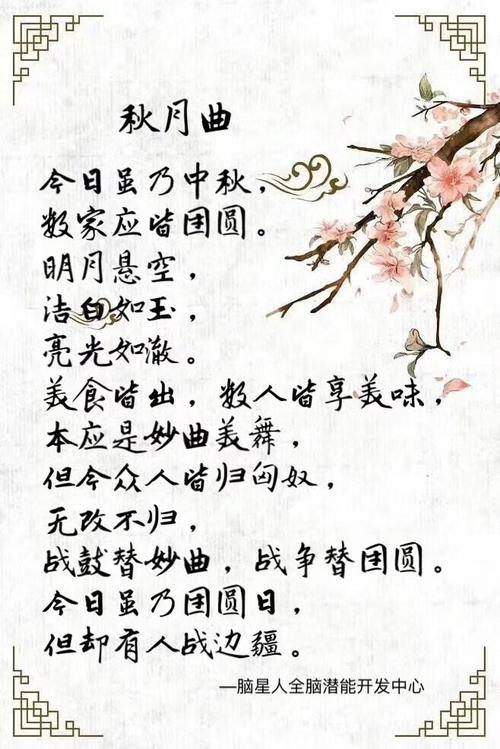 秋月曲
今日虽乃中秋，
数家应皆团圆。
明月悬空，
洁白如玉，
亮光如澈。
美食皆出，数人皆享美味，
本应是妙曲美舞，
但今众人皆归匈奴，
无改不归，
战鼓替妙曲，战争替团圆。
今日虽乃团圆日，
但却有人战边疆。
—脑星人全脑潜能开发中心